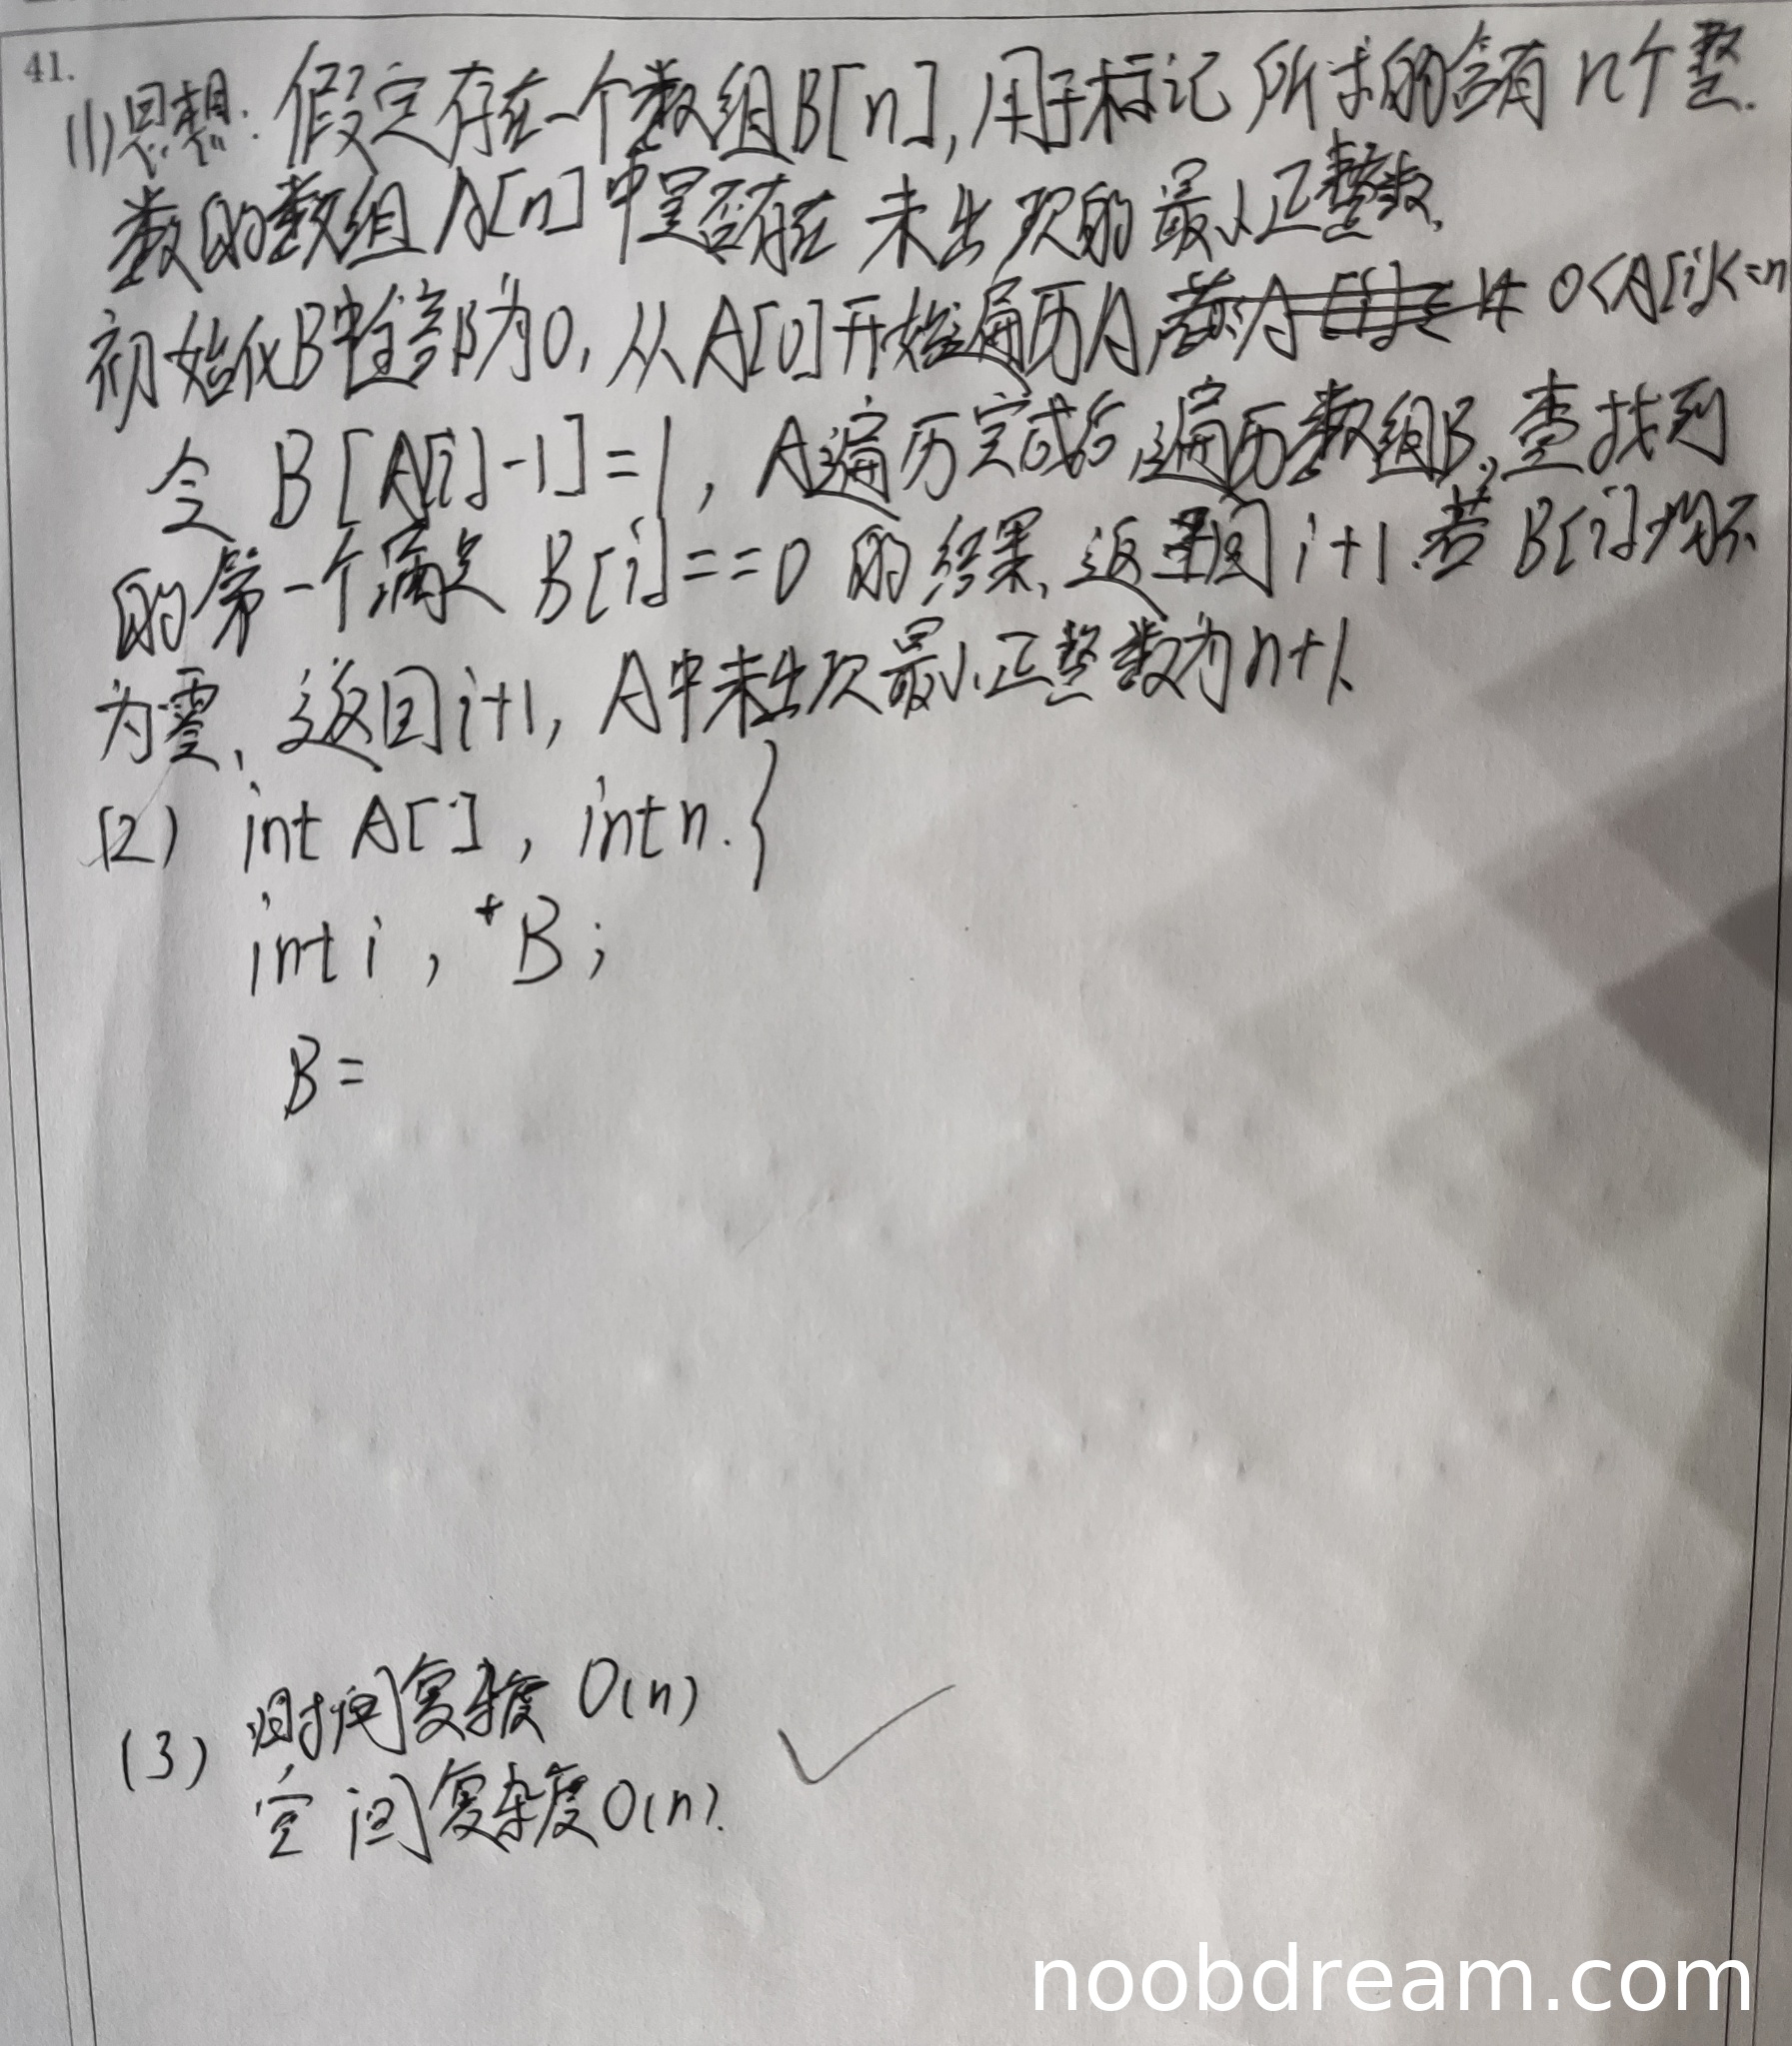 41.
(1)思想:假定存在一个数组B[n],用于标记所求的含有n个整
数的数组A[n]中是否存在未出现的最小正整数.
初始化B中全部为0,从A[0]开始遍历A,若 0<A[i]<=n
令 B[A[i]-1]=1,A遍历完成后,遍历数组B,查找到
的第一个满足 B[i]==0 的结果,返回 i+1.若 B[i]均不
为零,返回i+1,A中未出现最小正整数为n+1.
(2) int A[], int n.{
int i, *B;
B=
(3) 时间复杂度 O(n)
空间复杂度O(n).
noobdream.com